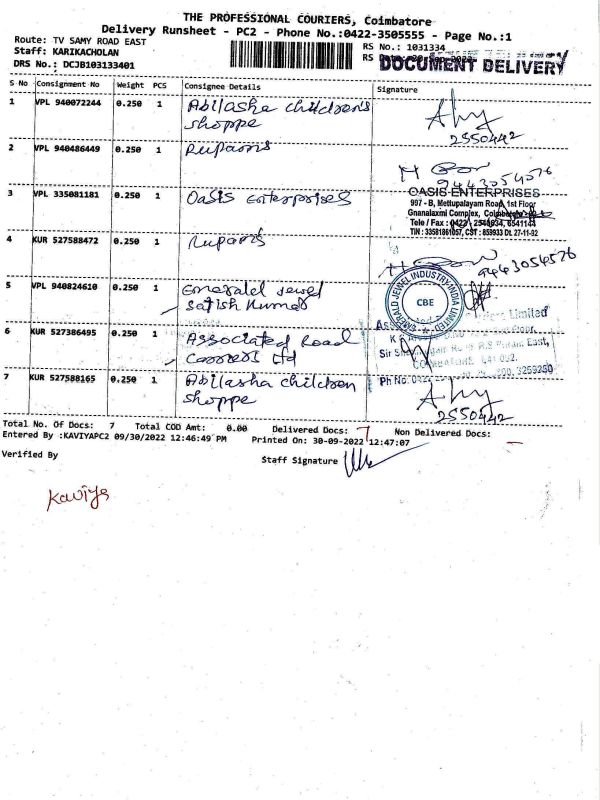 THE PROFESSIONAL COURIERS, Coimbatore
Delivery Runsheet - PC2 - Phone No.:0422-3505555 - Page No.:1
Route: TV SAMY ROAD EAST
RS No.: 1031334
Staff: KARIKACHOLAN
RS
DOCUMENT DELIVERY
DRS No.: DCJB103133401
S No Consignment No Weight PCS Consignee Details Signature
1 VPL 940072244 0.250 1 Abilasha children's
shoppe
2550442
2 VPL 940486449 0.250 1 Rupam's
9443054576
3 VPL 335081181 0.250 1 Oasis Enterprises
OASIS ENTERPRISES
997 - B, Mettupalayam Road, 1st Floor
Gnanalaxmi Complex,
Tele / Fax : 0422 6541144
TIN : 33581861057, CST : 859933 Dt. 27-11-92
4 KUR 527588472 0.250 1 Rupam's
9443054576
5 VPL 940824610 0.250 1 Emerald Jewel
Satish Kumar
EMERALD JEWEL INDUSTRY INDIA LIMITED
CBE
6 KUR 527386495 0.250 1 Associated Road
Carriers Ltd
Limited
Floor,
East,
Ph No. 3259250
7 KUR 527588165 0.250 1 Abilasha children
shoppe
2550442
Total No. Of Docs: 7 Total COD Amt: 0.00 Delivered Docs: 7 Non Delivered Docs: -
Entered By :KAVIYAPC2 09/30/2022 12:46:49 PM Printed On: 30-09-2022 12:47:07
Verified By Staff Signature
Kaviya